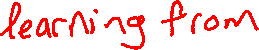 learning from